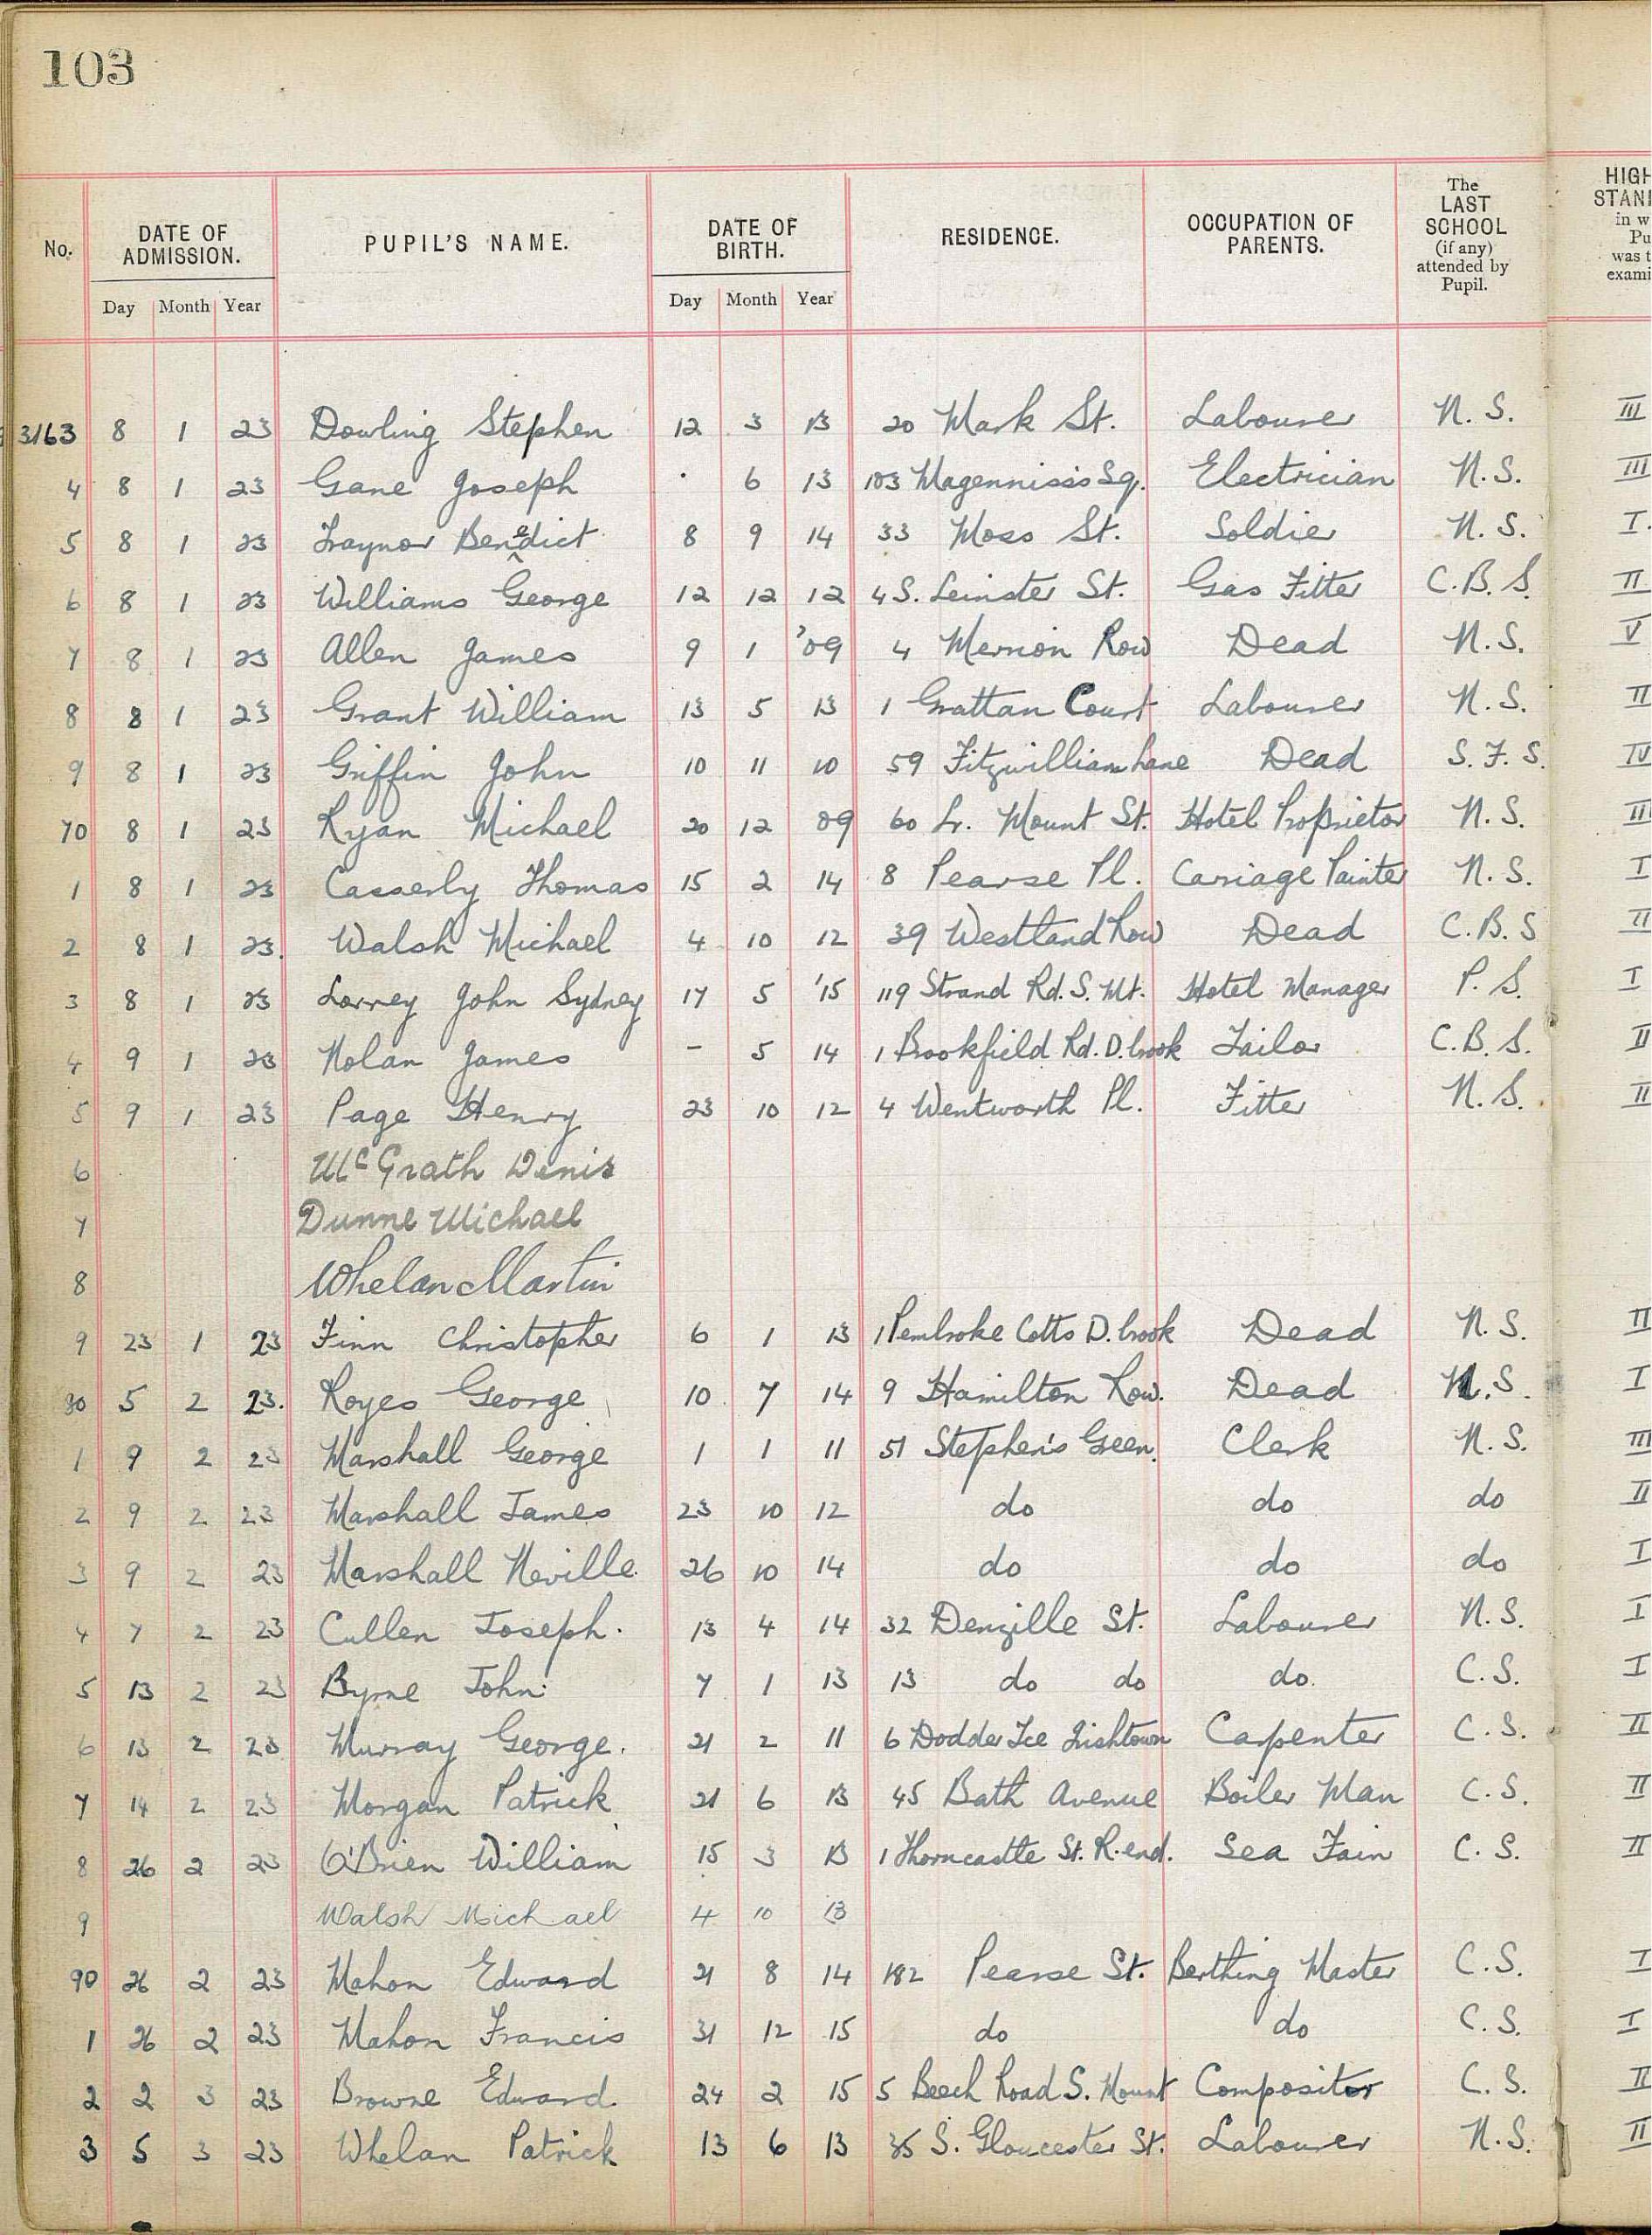 103
No. DATE OF ADMISSION. PUPIL'S NAME. DATE OF BIRTH. RESIDENCE. OCCUPATION OF PARENTS. The LAST SCHOOL (if any) attended by Pupil. HIGH STAN in w Pu was t exami
Day Month Year Day Month Year
3163 8 1 23 Dowling Stephen 12 3 13 20 Mark St. Labourer N. S. III
4 8 1 23 Gane Joseph . 6 13 103 Magennisis Sq. Electrician N. S. III
5 8 1 23 Traynor Benedict 8 9 14 33 Moss St. Soldier N. S. I
6 8 1 23 Williams George 12 12 12 4 S. Leinster St. Gas Fitter C. B. S. II
7 8 1 23 Allen James 9 1 '09 4 Merrion Row Dead N. S. V
8 8 1 23 Grant William 13 5 13 1 Grattan Court Labourer N. S. II
9 8 1 23 Griffin John 10 11 10 59 Fitzwilliam Lane Dead S. F. S. IV
70 8 1 23 Ryan Michael 20 12 09 60 Lr. Mount St. Hotel Proprietor N. S. II
1 8 1 23 Casserly Thomas 15 2 14 8 Pearse Pl. Carriage Painter N. S. I
2 8 1 23. Walsh Michael 4 10 12 39 Westland Row Dead C. B. S II
3 8 1 23 Lorrey John Sydney 17 5 '15 119 Strand Rd. S. Mt. Hotel Manager P. S. I
4 9 1 23 Nolan James - 5 14 1 Brookfield Rd. D.brook Tailor C. B. S. II
5 9 1 23 Page Henry 23 10 12 4 Wentworth Pl. Fitter N. S. II
6 McGrath Denis
7 Dunne Michael
8 Whelan Martin
9 23 1 23 Finn Christopher 6 1 13 1 Pembroke Cotts D.brook Dead N. S. II
80 5 2 23. Royes George 10 7 14 9 Hamilton Row. Dead N. S. I
1 9 2 23 Marshall George 1 1 11 51 Stephen's Green. Clerk N. S. III
2 9 2 23 Marshall James 23 10 12 do do do II
3 9 2 23 Marshall Neville 26 10 14 do do do I
4 7 2 23 Cullen Joseph. 13 4 14 32 Denzille St. Labourer N. S. I
5 13 2 23 Byrne John 7 1 13 13 do do do. C. S. I
6 13 2 23 Murray George. 21 2 11 6 Dodder Tce Irishtown Carpenter C. S. II
7 14 2 23 Morgan Patrick 21 6 13 45 Bath Avenue Boiler Man C. S. II
8 26 2 23 O'Brien William 15 3 13 1 Thorncastle St. R.end. Sea Fain C. S. II
9 Walsh Michael 4 10 13
90 26 2 23 Mahon Edward 21 8 14 182 Pearse St. Berthing Master C. S. I
1 26 2 23 Mahon Francis 31 12 15 do do C. S. I
2 2 3 23 Browne Edward 24 2 15 5 Beech Road S. Mount Compositor C. S. II
3 5 3 23 Whelan Patrick 13 6 13 35 S. Gloucester St. Labourer N. S. II